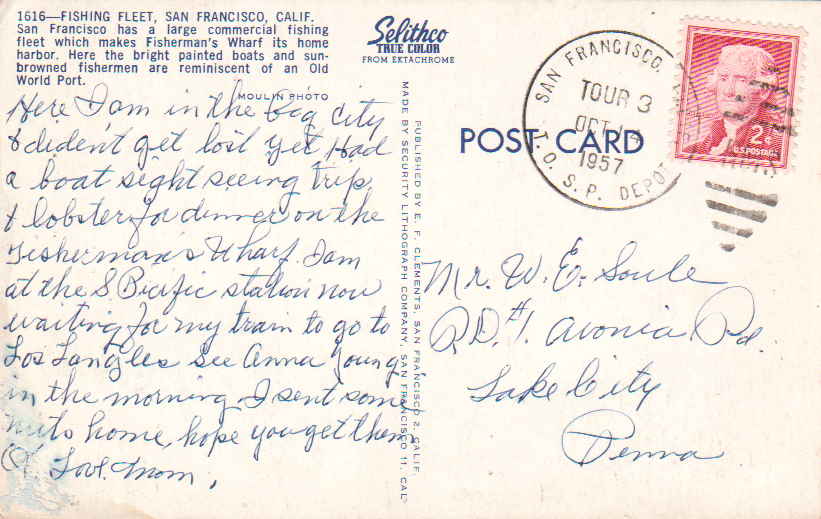 1616—FISHING FLEET, SAN FRANCISCO, CALIF.
San Francisco has a large commercial fishing
fleet which makes Fisherman's Wharf its home
harbor. Here the bright painted boats and sun-
browned fishermen are reminiscent of an Old
World Port.
MOULIN PHOTO
Selithco
TRUE COLOR
FROM EKTACHROME
Here I am in the big city
& dident get lost yet Had
a boat sight seeing trip,
& lobster for dinner on the
Fisherman's Wharf. I am
at the S. Pacific station now
waiting for my train to go to
Los Langles see Anna Young
in the morning I sent some
nuts home, hope you get them
Love. Mom.
PUBLISHED BY E. F. CLEMENTS, SAN FRANCISCO 2, CALIF.
MADE BY SECURITY LITHOGRAPH COMPANY, SAN FRANCISCO 11, CAL
POST CARD
SAN FRANCISCO,
TOUR 3
OCT 14
1957
T.O. S.P. DEPOT
2¢
U.S. POSTAGE
Mr. W. E. Soule
R.D. #1. Avonia Rd.
Lake City
Penna